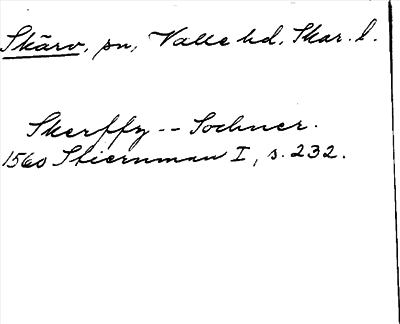 Skärv, sn, Valle hd, Skar. l.
Skerffy -- Sochner.
1560 Stiernman I, s. 232.